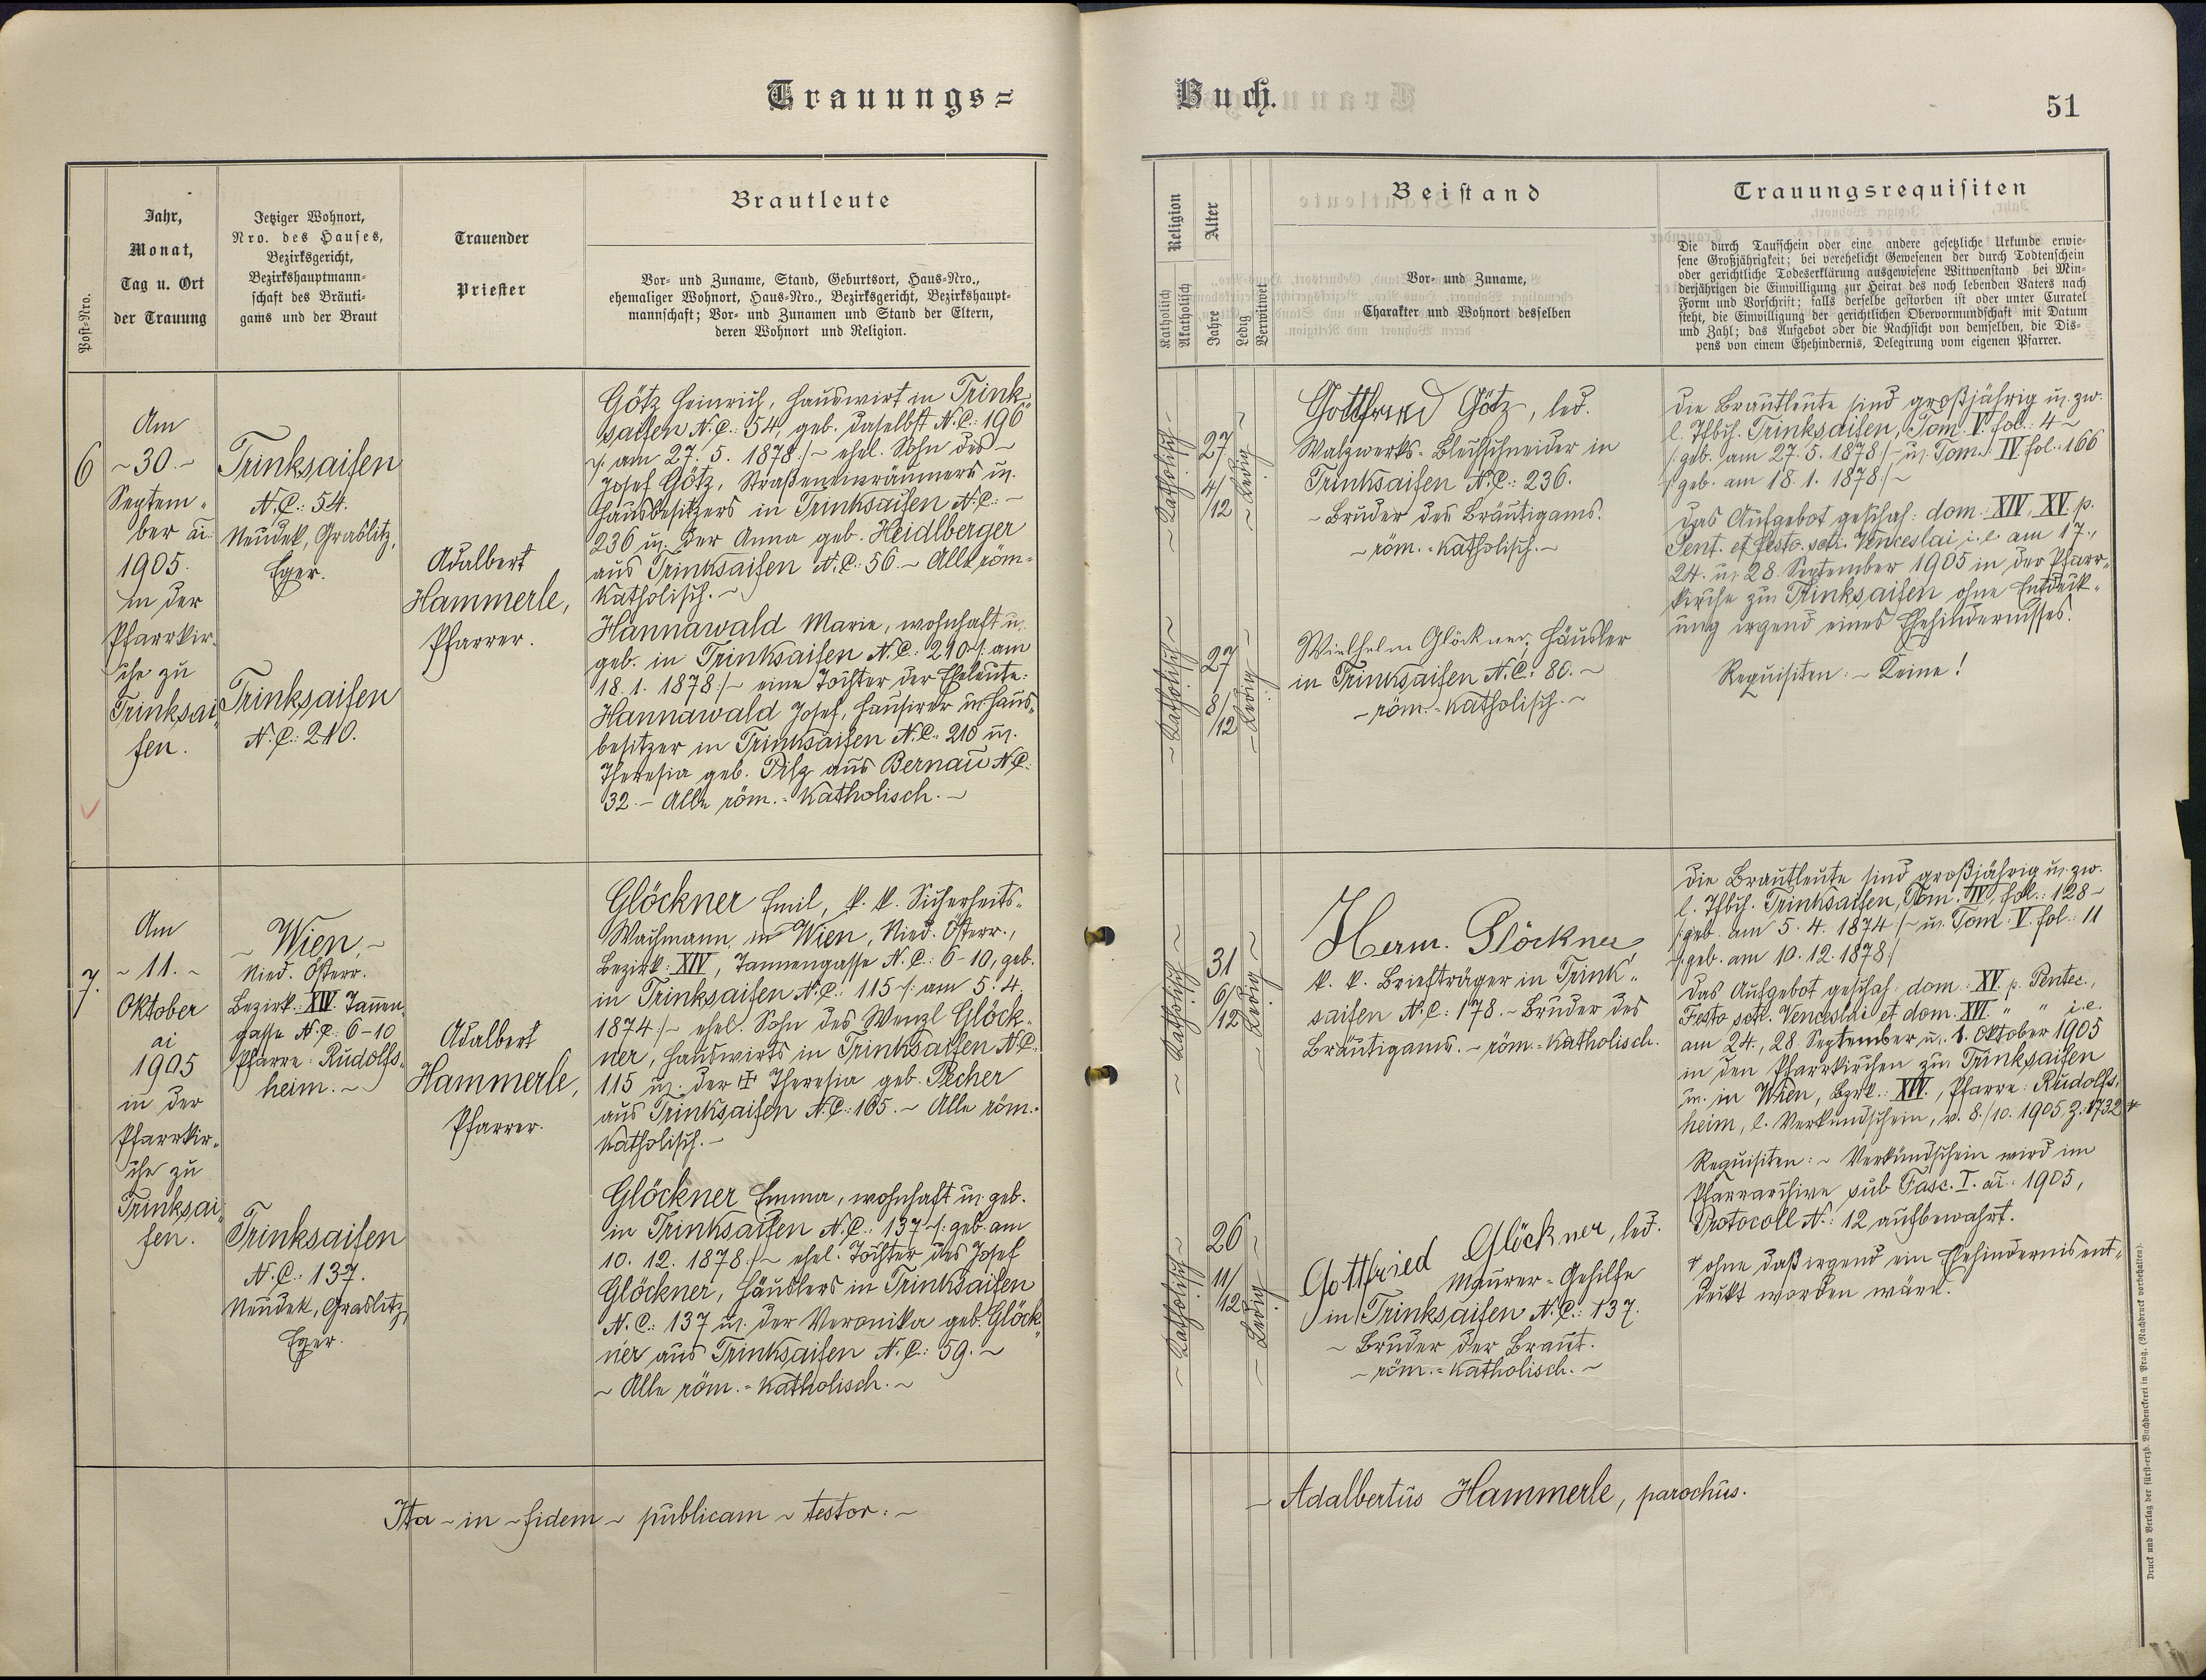 Trauungs=
Buch.
51
Post-Nro.
Jahr,
Monat,
Tag u. Ort
der Trauung
Jetziger Wohnort,
Nro. des Hauses,
Bezirksgericht,
Bezirkshauptmann-
schaft des Bräuti-
gams und der Braut
Trauender
Priester
Brautleute
Vor- und Zuname, Stand, Geburtsort, Haus-Nro.,
ehemaliger Wohnort, Haus-Nro., Bezirksgericht, Bezirkshaupt-
mannschaft; Vor- und Zunamen und Stand der Eltern,
deren Wohnort und Religion.
Religion
Katholisch
Akatholisch
Alter
Jahre
Ledig
Verwitwet
Beistand
Vor- und Zuname,
Charakter und Wohnort desselben
Trauungsrequisiten
Die durch Taufschein oder eine andere gesetzliche Urkunde erwie-
sene Großjährigkeit; bei verehelicht Gewesenen der durch Todtenschein
oder gerichtliche Todeserklärung ausgewiesene Wittwenstand bei Min-
derjährigen die Einwilligung zur Heirat des noch lebenden Vaters nach
Form und Vorschrift; falls derselbe gestorben ist oder unter Curatel
steht, die Einwilligung der gerichtlichen Obervormundschaft mit Datum
und Zahl; das Aufgebot oder die Nachsicht von demselben, die Dis-
pens von einem Ehehindernis, Delegirung vom eigenen Pfarrer.
6
Am
~ 30. ~
Septem„
ber ai:
1905.
in der
Pfarrkir„
che zu
Trinksai„
fen.
Trinksaifen
N.C.: 54.
Neudek, Graslitz,
Eger.
Trinksaifen
N.C.: 210.
Adalbert
Hammerle,
Pfarrer.
Götz Heinrich, Hauswirt in Trink„
saifen N.C.: 54, geb. daselbst N.C.: 196
/: am 27. 5. 1878 :/ ~ ehel. Sohn des ~
Josef Götz, Straßeneinräumers u.
Hausbesitzers in Trinksaifen N.C.: ~
236 u. der Anna geb. Heidlberger
aus Trinksaifen N.C.: 56. ~ Alle röm=
katholisch. ~
Hannawald Marie, wohnhaft u.
geb. in Trinksaifen N.C.: 210 /: am
18. 1. 1878 :/ ~ eine Tochter der Eheleute:
Hannawald Josef, Hausirer u. Haus„
besitzer in Trinksaifen N.C.: 210 u.
Theresia geb. Pilz aus Bernau N.C.:
32. ~ Alle röm.=katholisch. ~
~ Katholisch ~
27
4/12
~ Ledig ~
Gottfried Götz, led.
Walzwerks-Blechschneider in
Trinksaifen N.C.: 236.
~ Bruder des Bräutigams.
~ röm.=katholisch. ~
~ Katholisch ~
27
8/12
~ Ledig ~
Wielhelm Glöckner, Häusler
in Trinksaifen N.C.: 80. ~
~ röm.=katholisch. ~
Die Brautleute sind großjährig u. zw.
l. Tfbch. Trinksaifen, Tom. V. fol.: 4 ~
/: geb. am 27. 5. 1878 :/ ~ u. Tom. IV. fol.: 166
/: geb. am 18. 1. 1878 :/ ~
Das Aufgebot geschah: dom. XIV., XV. p.
Pent. et festo scti. Venceslai i.e. am 17.,
24. u. 28. September 1905 in der Pfarr„
kirche zu Trinksaifen ohne Entdeck„
ung irgend eines Ehehindernisses.
Requisiten: ~ Keine!
7.
Am
~ 11. ~
Oktober
ai
1905
in der
Pfarrkir„
che zu
Trinksai„
fen.
~ Wien, ~
Nied. Österr.
Bezirk: XIV Tannen„
gasse N.C.: 6-10
Pfarre: Rudolfs„
heim. ~
Trinksaifen
N.C.: 137.
Neudek, Graslitz,
Eger.
Adalbert
Hammerle,
Pfarrer.
Glöckner Emil, k. k. Sicherheits„
Wachmann in Wien, Nied. Österr.,
Bezirk: XIV, Tannengasse N.C.: 6-10, geb.
in Trinksaifen N.C.: 115 /: am 5. 4.
1874 :/ ~ ehel. Sohn des Wenzl Glöck„
ner, Hauswirts in Trinksaifen N.C.:
115 u. der ✝ Theresia geb. Pecher
aus Trinksaifen N.C.: 165. ~ Alle röm.=
katholisch. ~
Glöckner Emma, wohnhaft u. geb.
in Trinksaifen N.C.: 137 /: geb. am
10. 12. 1878 :/ ~ ehel. Tochter des Josef
Glöckner, Häuslers in Trinksaifen
N.C.: 137 u. der Veronika geb. Glöck„
ner aus Trinksaifen N.C.: 59. ~
~ Alle röm.=katholisch. ~
~ Katholisch ~
31
6/12
~ Ledig ~
Herm. Glöckner
k. k. Briefträger in Trink„
saifen N.C.: 178. ~ Bruder des
Bräutigams. ~ röm.=katholisch.
~ Katholisch ~
26
11/12
~ Ledig ~
Gottfried Glöckner, led.
Maurer-Gehilfe
in Trinksaifen N.C.: 137.
~ Bruder der Braut.
~ röm.=katholisch. ~
Die Brautleute sind großjährig u. zw.
l. Tfbch. Trinksaifen, Tom. IV, fol.: 128 ~
/: geb. am 5. 4. 1874 :/ ~ u. Tom. V. fol.: 11
/: geb. am 10. 12. 1878 :/
Das Aufgebot geschah: dom. XV. p. Pentec.,
Festo scti. Venceslai et dom. XVI. „ „ i.e.
am 24., 28. September u. 1. Oktober 1905
in den Pfarrkirchen zu Trinksaifen
u. in Wien, Bzrk.: XIV., Pfarre: Rudolfs„
heim, l. Verkündschein, v. 8./10. 1905, Z. 1732 *
Requisiten: ~ Verkündschein wird im
Pfarrarchive sub Fasc. I. ai: 1905,
Protocoll N.: 12 aufbewahrt.
* ohne daß irgend ein Ehehindernis ent„
deckt worden wäre.
Ita ~ in ~ fidem ~ publicam ~ testor: ~
~ Adalbertus Hammerle, parochus.
Druck und Verlag der fürst-erzb. Buchdruckerei in Prag. (Nachdruck vorbehalten).